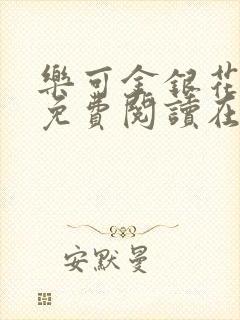 樂可金銀花
免費閱讀在
安默曼